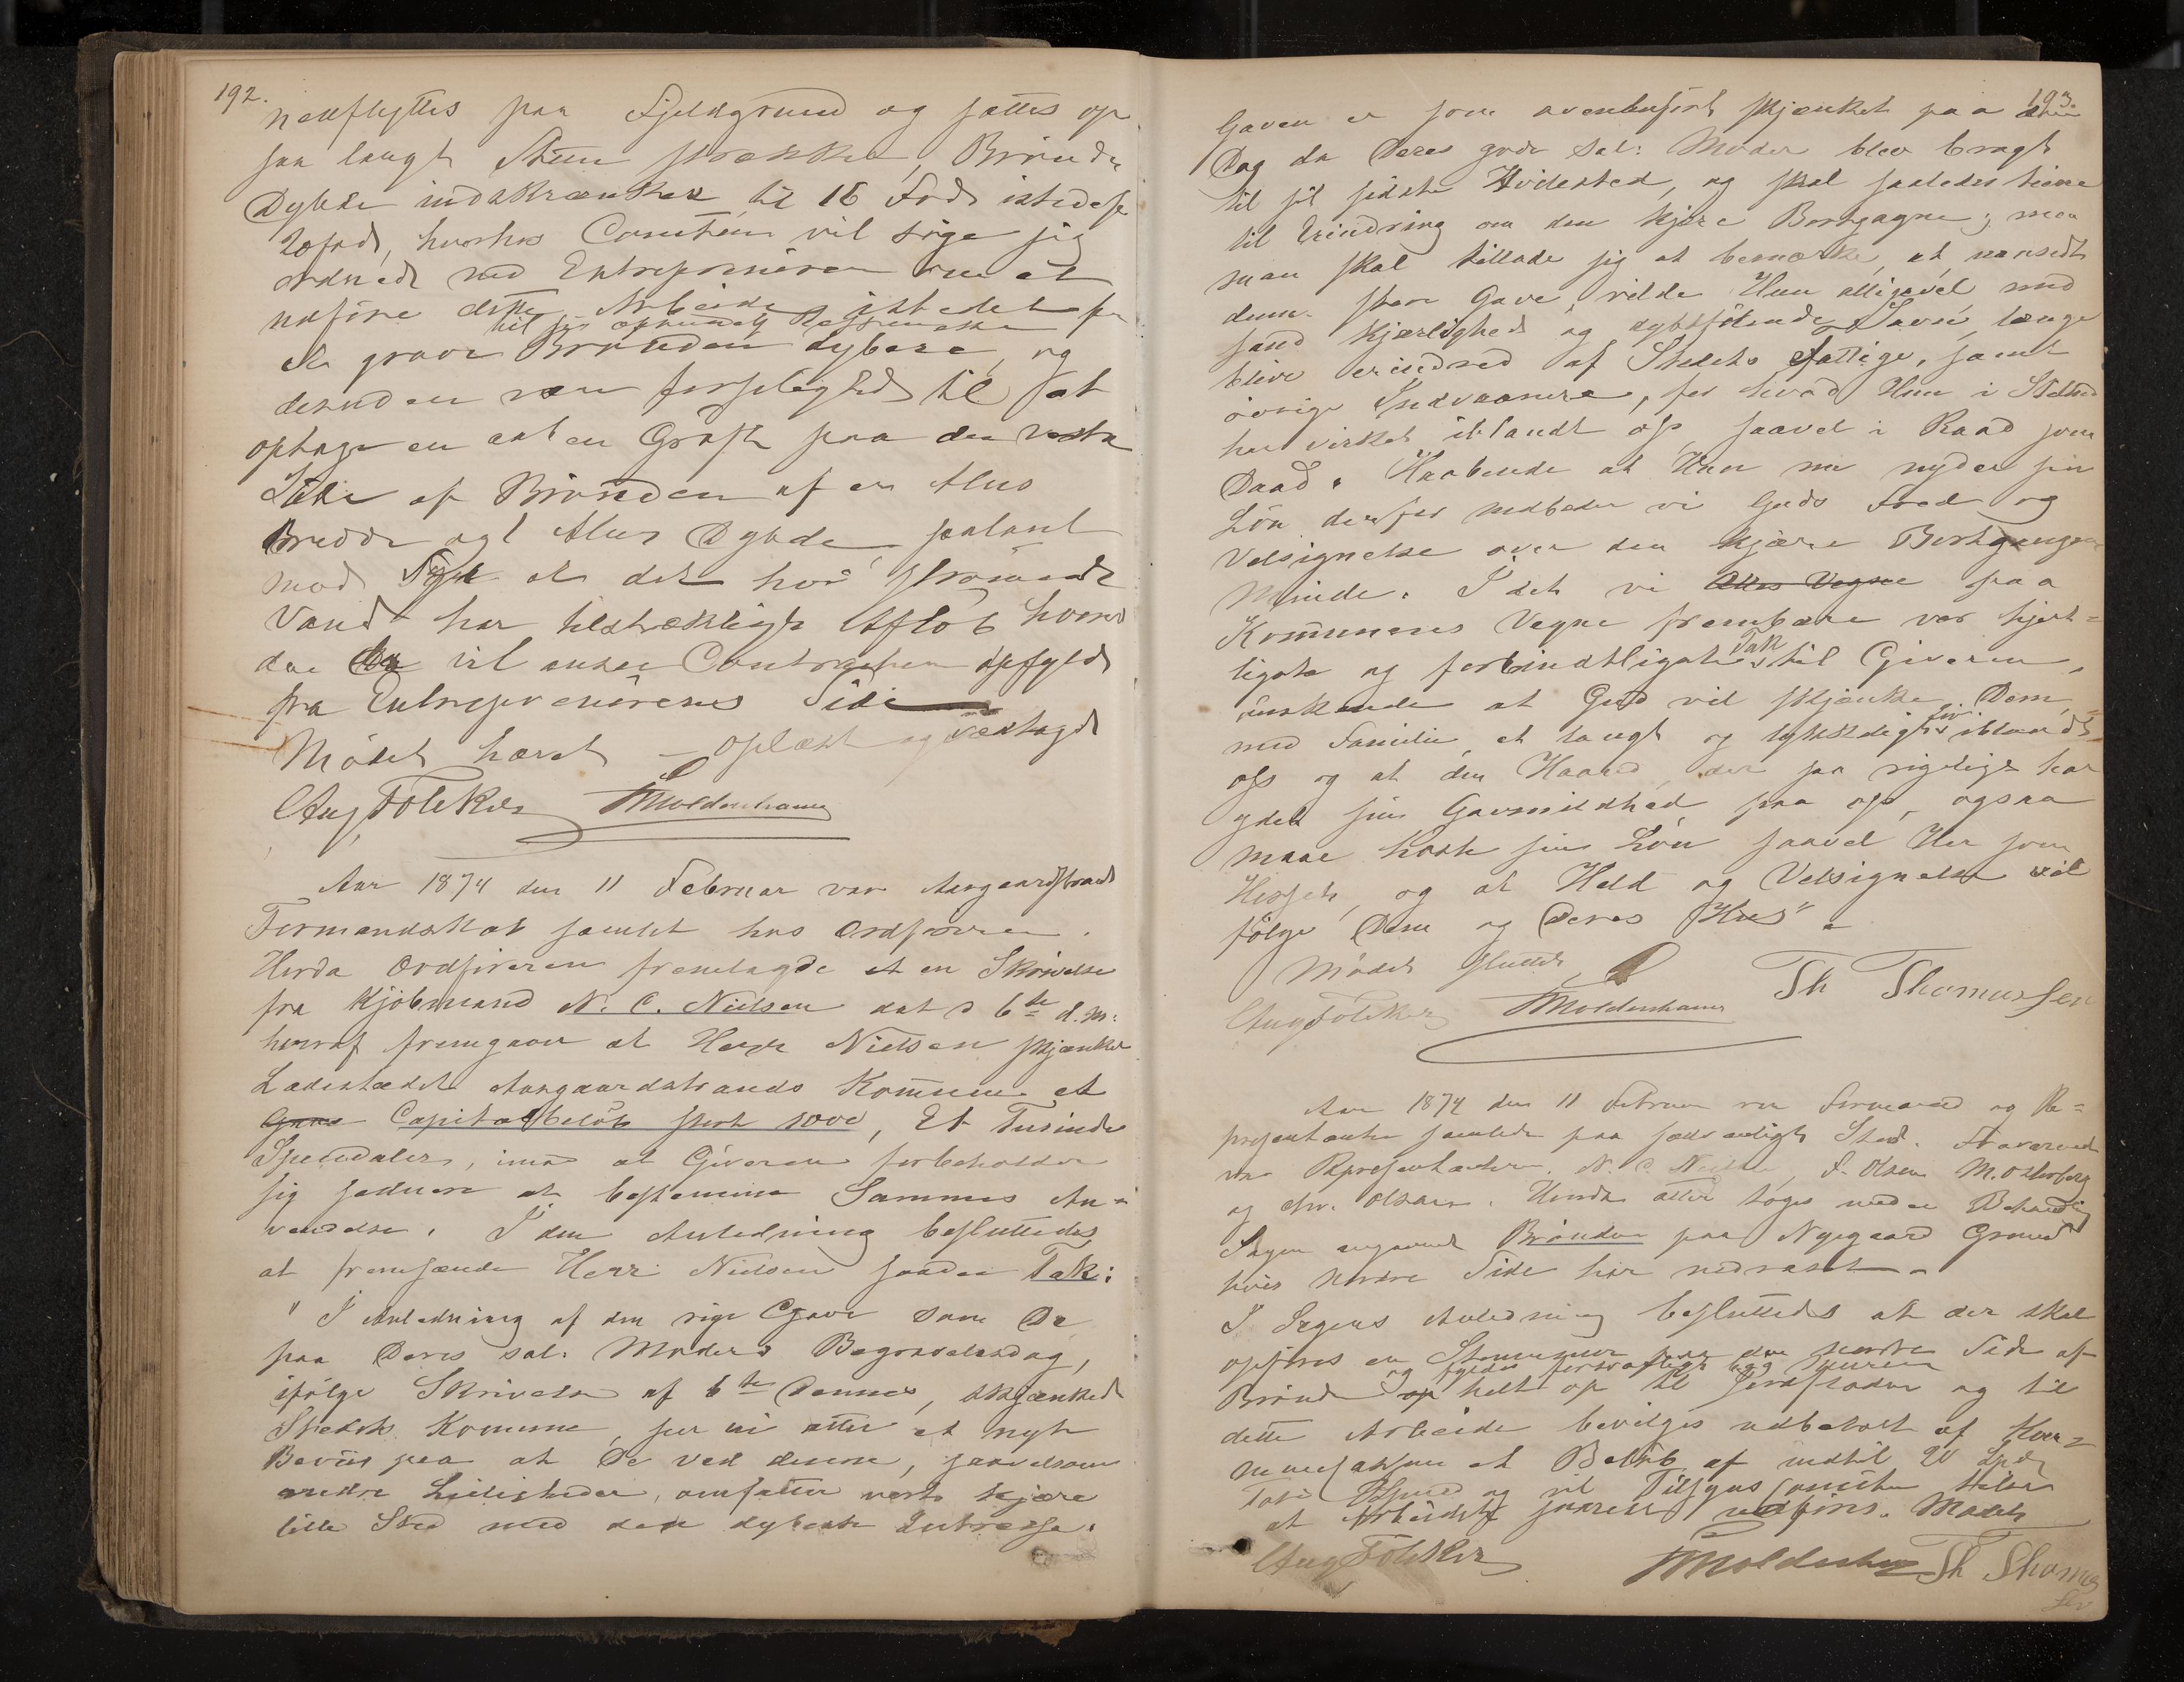 192.
nedflyttes paa Fjeldgrund og sættes op
saa langt Steen strækker, Brønde
Dybde indskrænkes til 16 Fod istedetfor
20 fod, hvorhos Comiteen vil søge sig
ordnet med Entreprenøren om at
udføre dette Arbeide istedet for
til sin
at grave Brønden dybere, og
desuden være forpligtet til at
optage en aaben Grøft paa den vestre
Side af Brønden af en Alns
Bredde og 1 Alns Dybde, saalunt
mod Syd at det her strømmende
Vand har tilstrækkeligt Afløb hvorved
da vil ansee Contracten opfyldt
fra Entreprenørens Side
Mødet hævet – oplæst og vedtaget
Aug Foleker Moldenhauer
Aar 1874 den 11 Februar var Aasgaardstrands
Formandskab samlet hos Ordføreren.
Hvorda Ordføreren fremlagde en Skrivelse
fra Kjøbmand N. C. Nielsen dat. 6te d. M:
hvoraf fremgaar at Herr Nielsen skjænker
Ladestedet Aasgaardstrands Komune et
Gave Capitalbeløb stort 1000, Et Tusinde
Speciedaler, imod at Giveren forbeholder
sig senere at bestemme Sammes An-
vendelse. I den Anledning besluttedes
at fremsende Herr Nielsen saadan Tak:
" I Anledning af den rige Gave som De
paa Deres sal. Moders Begravelsesdag,
ifølge Skrivelse af 6te Dennes, skjænkede
Stedets Komune, see vi atter et nyt
Beviis paa at De ved denne, saavelsom
andre Leiligheder, omfatter vort kjære
lille Sted med den dybeste Interesse.
193.
Gaven er som ovenanført skjænket paa den
Dag da Deres gode sal: Moder blev bragt
til sit sidste Hvilested, og skal saaledes tjene
til Erindring om den kjære Bortgagne; men
man skal tillade sig at bemærke, at uanseet
denne store Gave, vilde Hun alligevel med
sand Kjærlighed og dybtfølende Savn længe
blive erindret af Stedets fattige, samt
øvrige Indvaanere, for hvad Hun i Stilhed
har virket iblandt os, saavel i Raad som
Daad. Haabende at Hun nu nyder sin
Løn derfor nedbeder vi Guds Fred og
Velsignelse over den kjære Bortgangnes
Minde. I det vi Alles Vegne paa
Kommunens Vegne frembære vor hjert-
ligste og forbindtligste Tak til Giveren,
ønskende at Gud vil skjænke Dem,
med Familie, et langt og lykkeligt Liv iblandt
os og at den Haand, der saa rigeligt har
ydet sin Gavmildhed paa os, ogsaa
maae høste sin Løn saavel Her som
Hisset, og at Held og Velsignelse vil
følge Dem og Deres Huus" –
Mødet sluttet
Aug Foleker Moldenhauer Th Thomassen
Aar 1874 den 11 Februar var Formænd og Re-
præsentanter samlede paa sædvanligt Sted. Fraværende
var Repræsentanterne N. C. Nielsen, S. Olsen M. Osterberg
og Chr. Olsen. Hvorda atter toges under Behandling
Sagen angaaende Brønden paa Nygaard Grund
hvis nordre Side har nedraset –
I Sagens Anledning besluttedes at der skal
opføres en Steenmuur paa den nordre Side af
og fyldes forsvarligt bag Muren
Brønd op helt op til Jordfladen og til
dette Arbeide bevilges udbetalt af Kom-
munekassen et Beløb af indtil 20 Spd
og vil Tilsyns Comiteen
at Arbeidet snarest udføres. Mødet
Aug Foleker Moldenhauer Th Thomas
sen